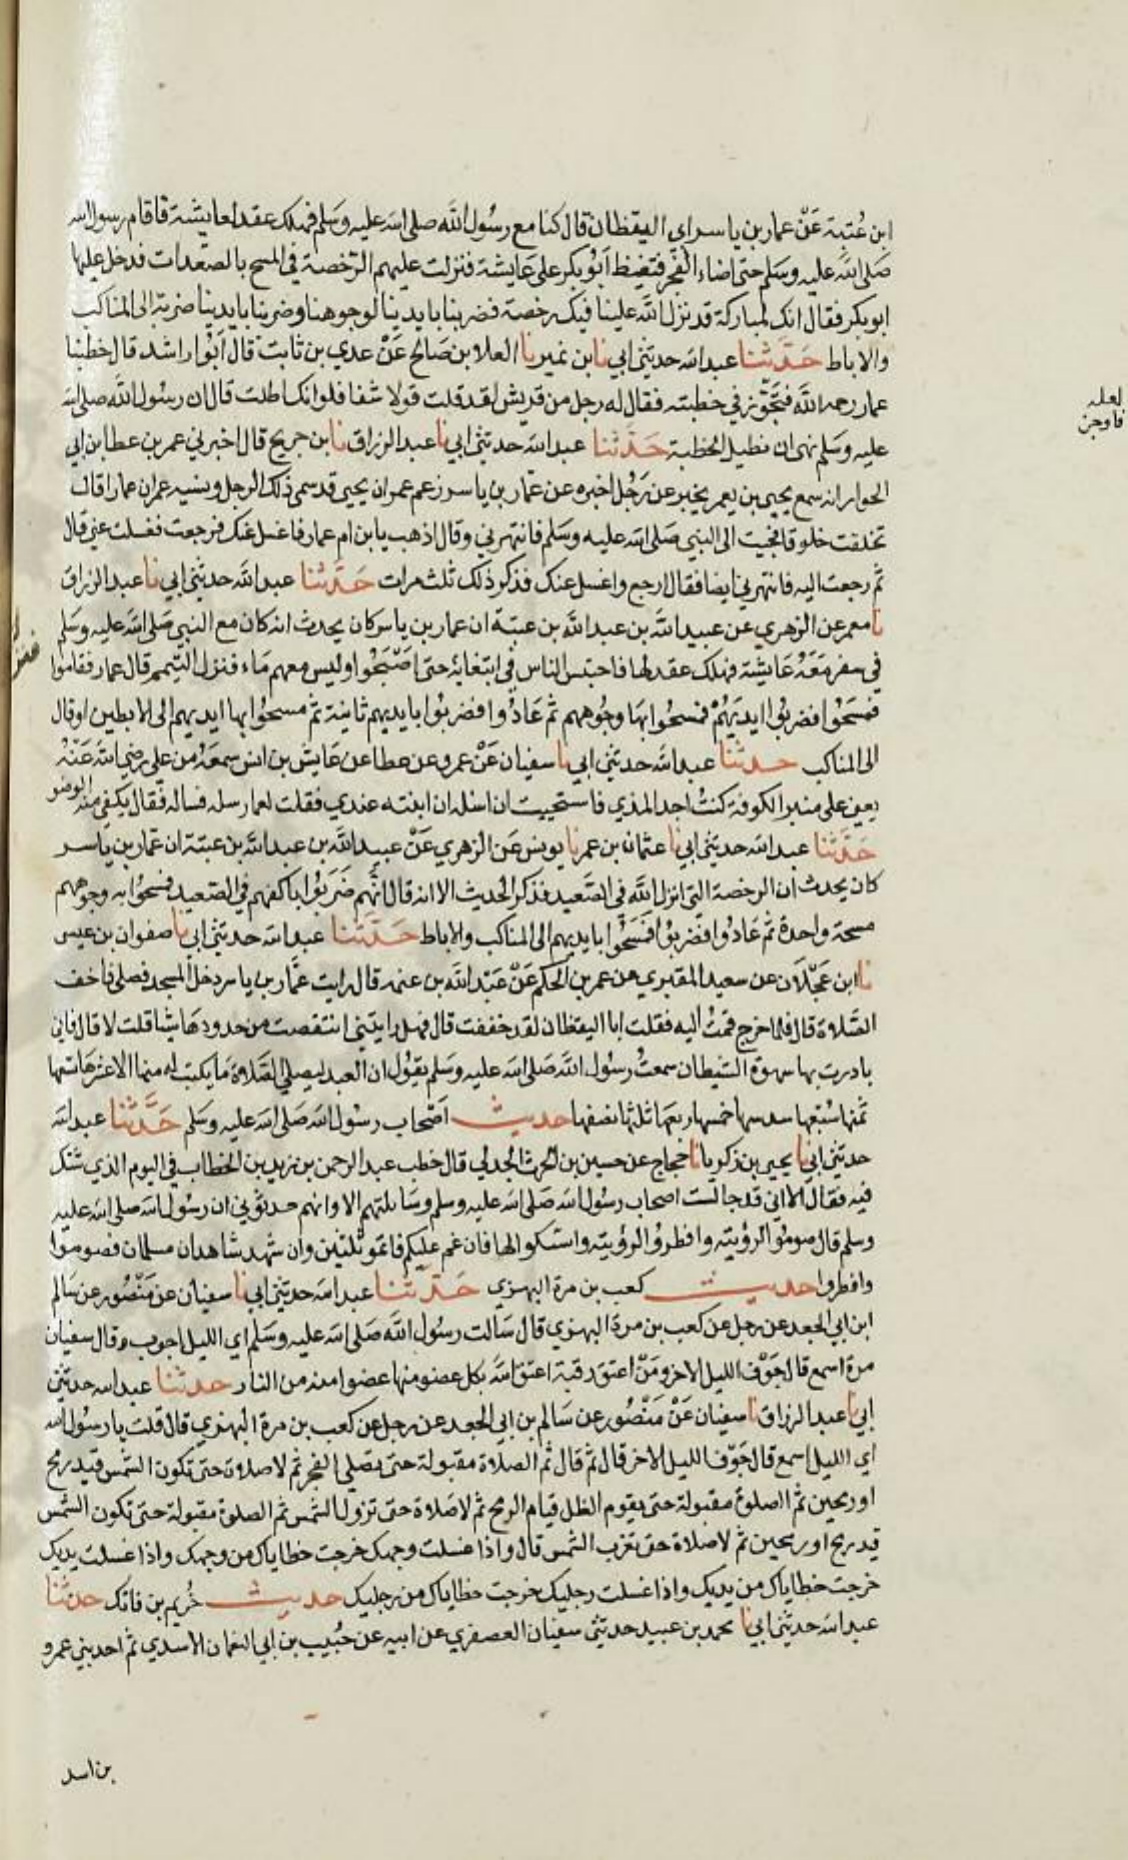 ابن عُتبة عَنْ عمار بن ياسر ابي اليقظان قال كنا مع رسُول اللَّه صلى الله عليه وسَلم فهلك عقد لعايشة فاقام رسول الله
صَلى اللَّه عليه وسَلم حتى اضاء الفجر فتغيظ ابَو بكر على عَايشة فنزلت عليهم الرخصة في المسح بالصعدات فدخل عليها
ابو بكر فقال انك لمباركة قد نزل اللَّه علينا فيك رخصة فضربنا بايدينا لوجوهنا وضربنا بايدينا ضربة الى المناكب
والاباط حَدَّثنا عبد الله حدثني ابي نا ابن نمير نا العلا بن صَالح عَنْ عدي بن ثابت قال ابَوُ راشد قال خطبنا
عمار رحمه اللَّه فتجَوّز في خطبته فقال له رجل من قريش لقد قلت قولا شفا فلو انك اطلت قال ان رسُول اللَّه صلى الله
عليه وسَلم نهى ان نطيل الخطبة حَدَّثنا عبد الله حدثني ابي نا عبد الرزاق نا ابن جريج قال اخبرني عمر بن عطا بن ابي
الحوار انه سمع يحيى بن يعمر يخبر عن رَجُل اخبره عن عمَّار بن ياسر زعم عمر ان يحيى قد سمى ذلك الرجل ونسيه عمر ان عمارا قال
تخلقت خلوقا فجيت الى النبي صَلى الله عليه وسَلم فانتهرني وقال اذهب يا بن ام عمار فاغسل عنك فرجعت فغسلت عني قال
ثم رجعت اليه فانتهرني ايضا فقال ارجع واغسل عنك فذكر ذلك ثلث مرات حَدَّثنا عبد اللَّه حدثني ابي نا عبد الرزاق
نا معمر عن الزهري عن عبيد اللَّه بن عبد اللَّه بن عتبة ان عمار بن ياسر كان يحدث انه كان مع النبي صَلى الله عليه وسَلم
في سفر مَعَهُ عَايشة فهلك عقد لها فاحتبس الناس في ابتغائه حتى اصْبَحُوا وليس معهم مَاء فنزل التيمم قال عمار فقاموا
فمسَحُوا فضربُوا ايديَهُمْ فمسحُوا بهَا وجُوههم ثم عَادُوا فضربُوا بايديهم ثانية ثم مسحوُا بها ايديهم الى الابطين او قال
الى المناكب حدثنا عبد الله حدثني ابي نا سفيان عَنْ عمرو عن عطا عن عَايش بن انس سمعَهُ من علي رضي الله عَنْهُ
يعني على منبر الكوفة كنتُ اجد المذي فاستحييت ان اسئله ان ابنته عندي فقلت لعمار سله فساله فقال يكفي منه الوضو
حَدَّثنا عبد الله حدثني ابي نا عثمان بن عمر نا يونس عَن الزهري عَنْ عبيد اللَّه بن عبد اللَّه بن عتبة ان عمَّار بن يَاسر
كان يحدث ان الرخصة التي انزل اللَّه في الصَّعيد فذكر الحديث الا انه قال انَّهم ضَربُوا باكفهم في الصَّعيد فمسحوُا به وجوههم
مسحة واحدة ثم عَادُوا فضربُوا فمَسَحُوا بايديهم الى المناكب والاباط حَدَّثنا عبد الله حدثني ابي نا صفوان بن عيسى
نا ابن عَجْلَان عن سعيد المقبري عن عمر بن الحكم عَنْ عَبْد اللَّه بن عنمه قال رايت عمَّار بن ياسر دخل المسجد فصلى فاخف
الصَّلاة قال فلما خرج قمتُ اليه فقلت ابا اليقظان لقد خففت قال فهل رايتني انتقصت من حدودهَا شيا قلت لا قال فاني
بادرت بها سهوة الشيطان سمعتُ رسُول اللَّه صَلى الله عليه وسلم يقوُل ان العبد ليصلي الصَّلاة مَا يكتب له منها الا عشرهَا تسعها
ثمنها سُبعها سدسها خمسها ربعهَا ثلثها نصفها حديث اصْحاب رسُول الله صَلى الله عَليه وسَلم حَدَّثنا عبد الله
حدثني ابي نا يحيى بن زكريا نا حجاج عن حسين بن الحرث الجدلي قال خطب عبد الرحمن بن زيد بن الخطاب في اليوم الذي شك
فيه فقال الا اني قد جالست اصحاب رسُول الله صَلى الله عليه وسلم وسَايلتهم الا وانهم حدثوني ان رسُول الله صَلى الله عليه
وسلم قال صوموُا لرؤيته وافطروُا لرؤيته وانسكوا لها فان غم عليكم فاتموُا ثلثين وان شهد شاهدان مسلمان فصوموُا
وافطروا حديث كعب بن مرة البهزي حَدَّثنا عبد الله حدثني ابي نا سفيان عن مَنْصُور عن سَالم
ابن ابي الجعد عن رجل عن كعب بن مرة البهزي قال سَالت رسُول اللَّه صَلى الله عليه وسَلم اي الليل اجوب وقال سفيان
مرة اسمع قال جَوْف الليل الاخر ومَنْ اعتق رقبة اعتق اللَّه بكل عضو منها عضوا منه من النار حدثنا عبد الله حدثني
ابي نا عبد الرزاق نا سفيان عَنْ مَنْصُور عن سَالم بن ابي الجعد عن رجل عن كعب بن مرة البهزي قال قلت يا رسُول الله
اي الليل اسمع قال جَوْف الليل الاخر قال ثم قال ثم الصلاة مقبولة حتى يصلى الفجر ثم لا صلاة حتى تكون الشمس قيد رمح
او رمحين ثم الصلوة مقبولة حتى يقوم الظل قيام الرمح ثم لا صَلاة حتى تزول الشمس ثم الصلوة مقبولة حتى تكون الشمس
قيد رمح او رمحين ثم لا صلاة حتى تغرب الشمس قال واذا غسلت وجهك خرجت خطاياك من وجهك واذا غسلت يديك
خرجت خطاياك من يديك واذا غسلت رجليك خرجت خطاياك من رجليك حديث خُريم بن فاتك حدثنا
عبد الله حدثني ابي نا محمد بن عبيد حدثني سفيان العصفري عن ابيه عن حَبيب بن ابي النعمان الاسدي ثم احد بني عمرو
بن اسد
لعله
فاوجز